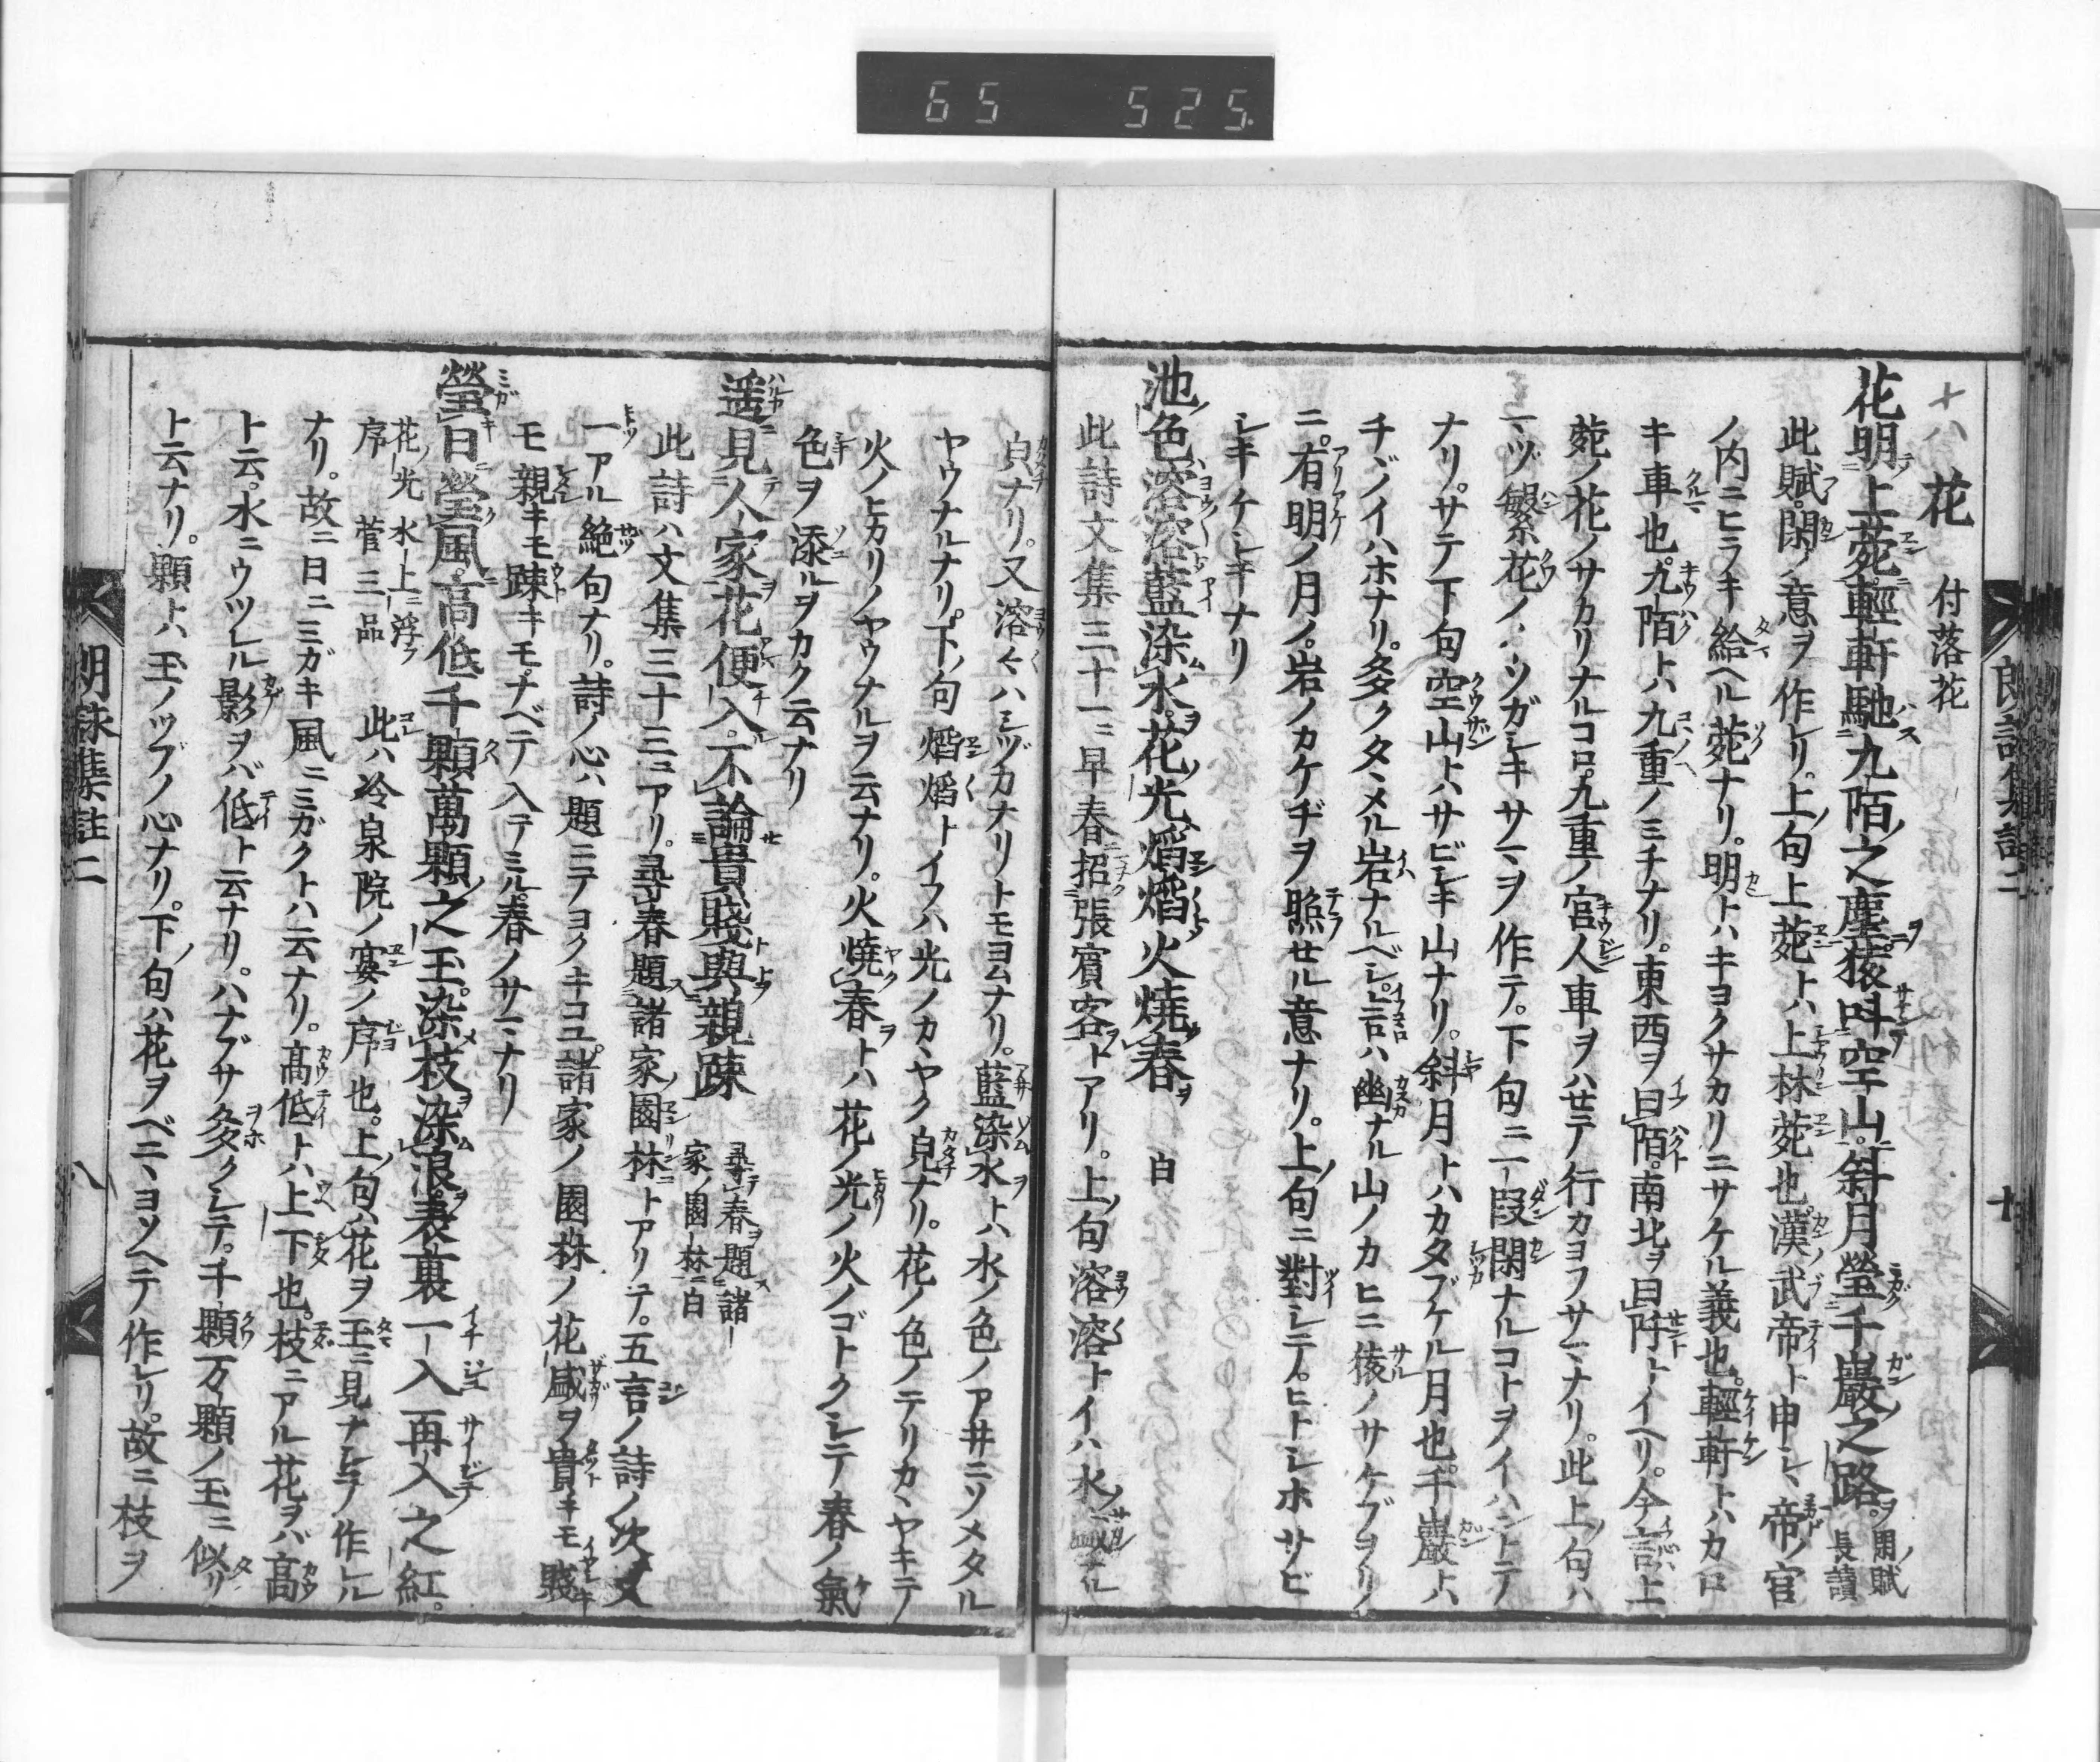 65 525.
十八 花 付落花
花明上苑輕軒馳九陌之塵猿叫空山斜月瑩千巖之路 閑賦 長讀
此賦閑ノ意ヲ作レリ。上ノ句上苑トハ上林苑也漢ノ武帝ト申シヽ帝ノ官
ノ内ニヒラキ給ヘル苑ナリ。明トハキヨクサカリニサケル義也。輕軒トハカロ
キ車也。九陌トハ九重ノミチナリ。東西ヲ曰陌。南北ヲ曰阡トイヘリ。今言ハ上
苑ノ花ノサカリナルコロ。九重ノ官人車ヲハセテ行カヨフサマナリ。此上ノ句ハ
マヅ繁花ノイソガシキサマヲ作テ。下句ニ一段閑ナルコトヲイハントテ
ナリ。サテ下句空山トハサビシキ山ナリ。斜月トハカタブケル月也。千巖トハ
チヾノイハホナリ。多クタヽメル岩ナルベシ。言ハ幽ナル山ノカヒニ猿ノサケブヨリ。
ニ。有明ノ月ノ。岩ノカケヂヲ照セル意ナリ。上ノ句ニ對シテ。ヒトシホサビ
シキケシキナリ
池色溶溶藍染水花光焰焰火燒春 白
此詩文集三十一ニ早春招張賓客トアリ。上ノ句溶溶トイハ水ノ
皃ナリ。又溶々ハシヅカナリトモヨムナリ。藍染水トハ水ノ色ノアヰニソメタル
ヤウナルナリ。下ノ句焰焰トイフハ光ノカヽヤク皃ナリ。花ノ色ノテリカヽヤキテ
火ノヒカリノヤウナルヲ云ナリ。火燒春トハ花ノ光ノ火ノゴトクシテ春ノ氣
色ヲ添ルヲカク云ナリ
遥見人家花便入不論貴賤與親疎 尋春題諸家ノ園林 白
此詩ハ文集三十三ニアリ。尋春題諸家園林トアリテ。五言ノ詩ノ次又
一アル絶句ナリ。詩ノ心ハ題ニテヨクキコユ。諸家ノ園林ノ花盛ヲ貴キモ賤
モ親キモ踈キモ。ナベテ入テミル。春ノサマナリ
瑩日瑩風高低千顆萬顆之玉染枝染浪表裏一入再入之紅。
花光水上浮序 菅三品 此ハ冷泉院ノ宴ノ序也。上ノ句ハ花ヲ玉ニ見ナシテ作レル
ナリ。故ニ日ニミガキ風ニミガクトハ云ナリ。高低トハ上下也。枝ニアル花ヲバ高
ト云。水ニウツレル影ヲバ低ト云ナリ。ハナブサ多クシテ。千顆万顆ノ玉ニ似リ
ト云ナリ。顆トハ玉ノツブノ心ナリ。下ノ句ハ花ヲベニヽヨソヘテ作レリ。故ニ枝ヲ
朗詠集註二 八